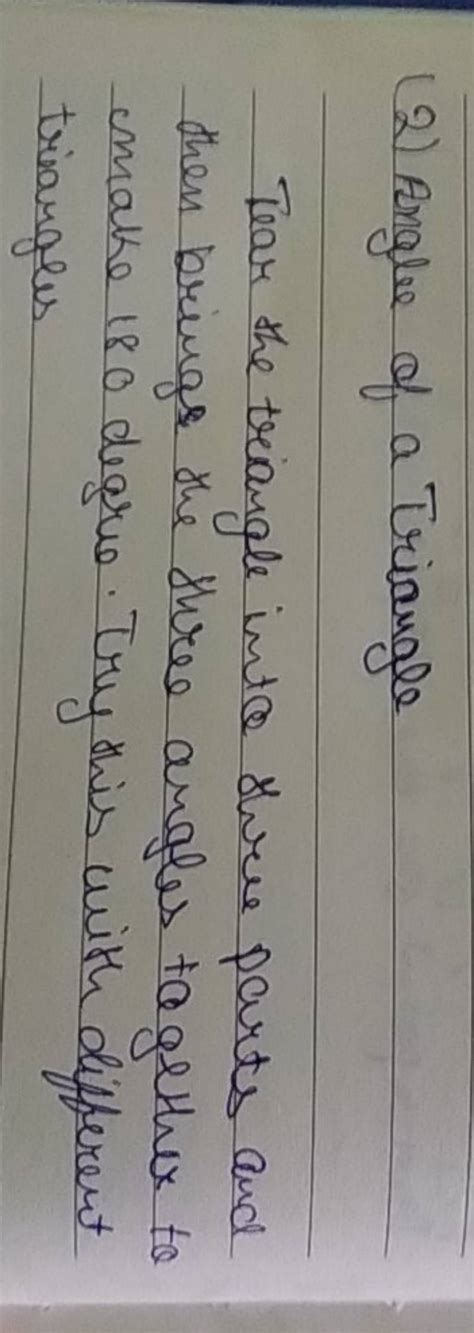 (2) Angles of a Triangle
Tear the triangle into three parts and
then brings the three angles together to
make 180 degree. Try this with different
triangles